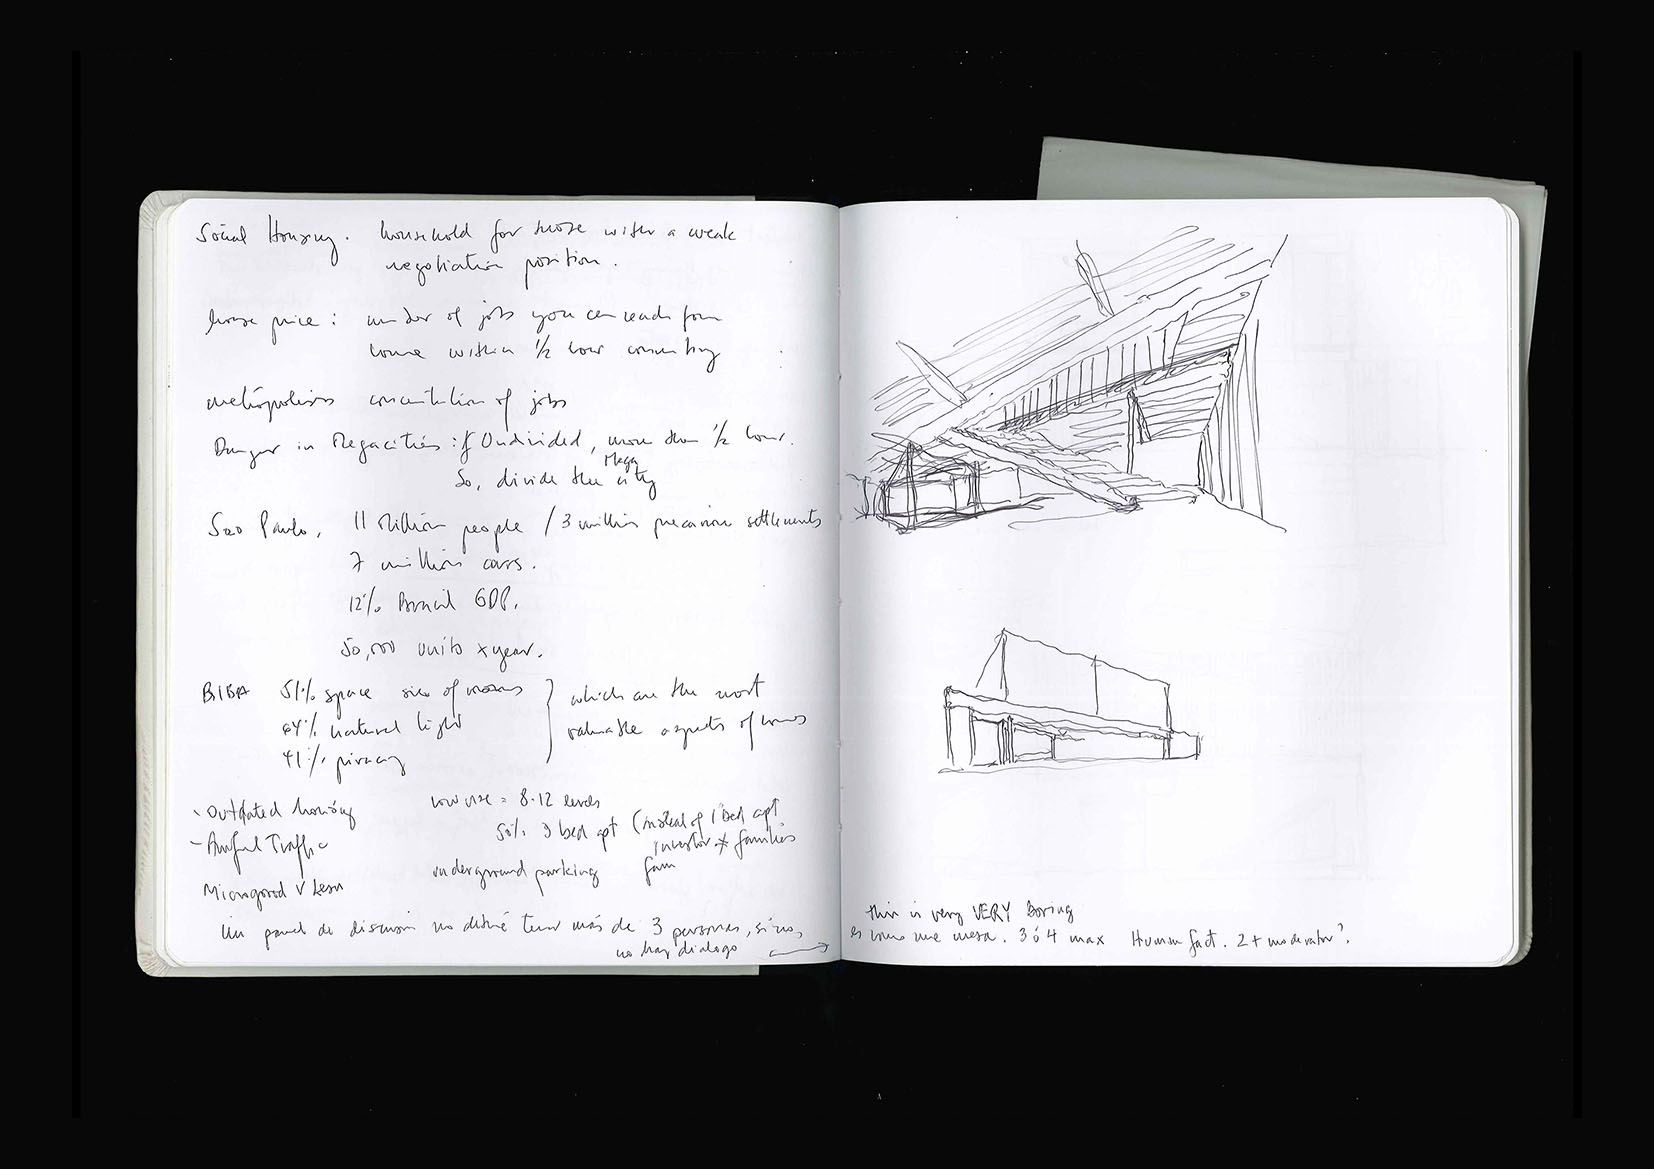 Social Housing. household for those with a weak
negotiation position.
house price: number of jobs you can reach from
home within 1/2 hour commuting
metropolises concentration of jobs
Danger in Megacities: if Undivided, more than 1/2 hour.
So, divide the Mega city
Sao Paulo, 11 Million people / 3 million precarious settlements
7 million cars.
12% Brasil GDP.
50,000 units x year.
51% space size of rooms
64% natural light
41% privacy
which are the most
valuable aspects of homes
- Outdated housing
- Awful Traffic
low rise = 8-12 levels
50% 3 bed apt (instead of 1 bed apt
investor ≠ families
underground parking fam
Un panel de discusión no debié tener más de 3 personas, si no,
no hay dialogo
this is very VERY Boring
es como una mesa. 3 ó 4 max Human fact. 2 + moderator?.